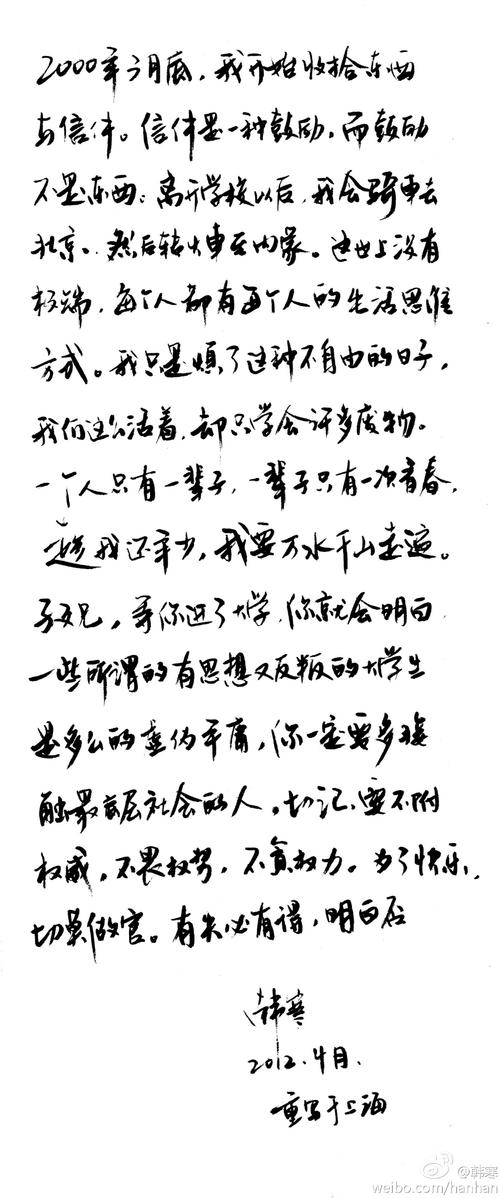 2000年3月底，我开始收拾东西
与信件。信件是一种鼓励，而鼓励
不是东西。离开学校以后，我会骑车去
北京，然后转火车至内蒙。这世上没有
极端，每个人都有每个人的生活思维
方式。我只是烦了这种不自由的日子，
我们这么活着，却只学会许多废物。
一个人只有一辈子，一辈子只有一次青春，
趁我还年少，我要万水千山走遍。
兄，等你进了大学，你就会明白
一些所谓的有思想又反叛的大学生
是多么的虚伪平庸，你一定要多接
触最底层社会的人。切记，要不附
权威，不畏权势，不贪权力。为了快乐，
切莫做官。有失必有得，明白否
韩寒
2012.4月.
重写于上海
@韩寒
weibo.com/hanhan